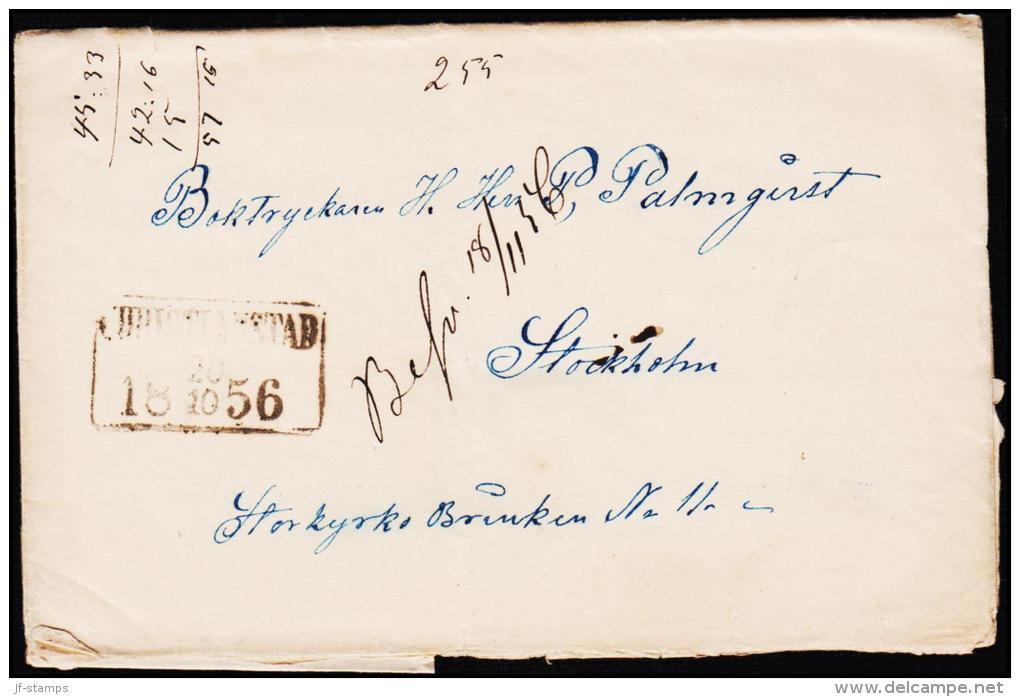 45:33
42:16
15
57 16
255
Boktryckaren H. Herr P, Palmqvist
Befr. 18/11 56
CHRISTIANSTAD
18 20/10 56
Stockholm
Storkyrko Brinken No 11.
jf-stamps
www.delcampe.net